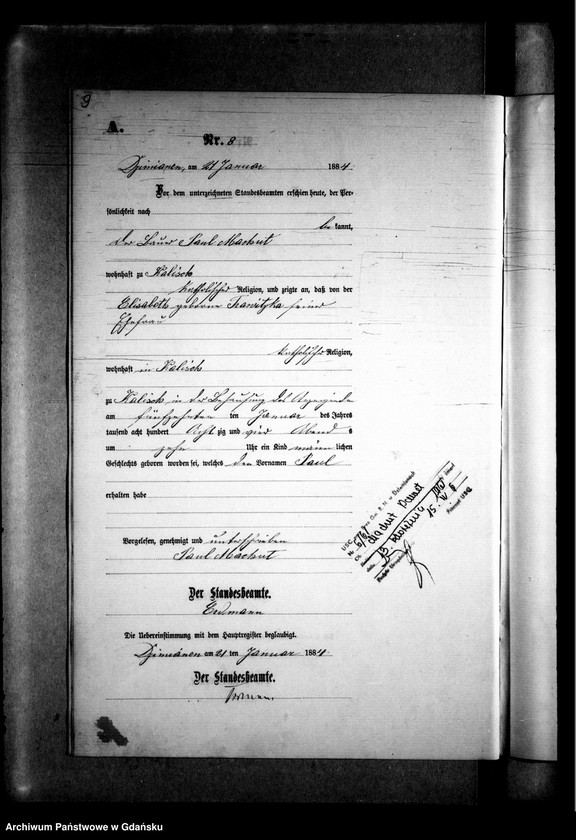 9
A.
Nr. 8
Dzimianen, am 21 Januar 1884.
Vor dem unterzeichneten Standesbeamten erschien heute, der Per-
sönlichkeit nach
be kannt,
der Bauer Paul Machut
wohnhaft zu Kalisch
katholischer Religion, und zeigte an, daß von der
Elisabeth geborne seiner
Ehefrau
katholischer Religion,
wohnhaft in Kalisch
zu Kalisch in der Behausung des
am fünfzehnten ten Januar des Jahres
tausend acht hundert Acht zig und vier Abend s
um zehn Uhr ein Kind männ lichen
Geschlechts geboren worden sei, welches den Vornamen Paul
erhalten habe
Vorgelesen, genehmigt und unterschrieben
Paul Machut
Der Standesbeamte.
Erdmann
Die Uebereinstimmung mit dem Hauptregister beglaubigt.
Dzimianen am 21 ten Januar 1884
Der Standesbeamte.
USC
Nr 6/61
Machut Paweł
Archiwum Państwowe w Gdańsku